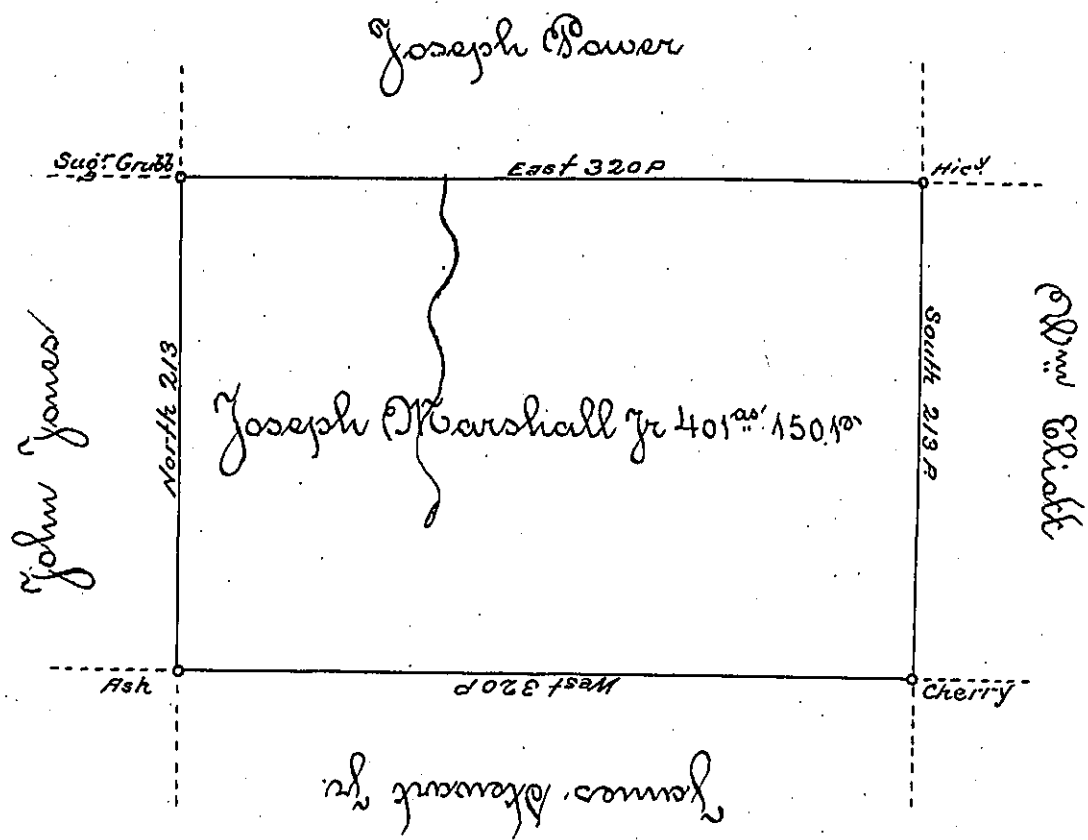 Joseph Power
Sugr. Grubb
East 320 P
Hicy.
John Jones
North 213
Joseph Marshall Jr 401as. 150 Per
South 213 P.
Wm Eliott
Ash
West 320 P
Cherry
James Stewart Jr.